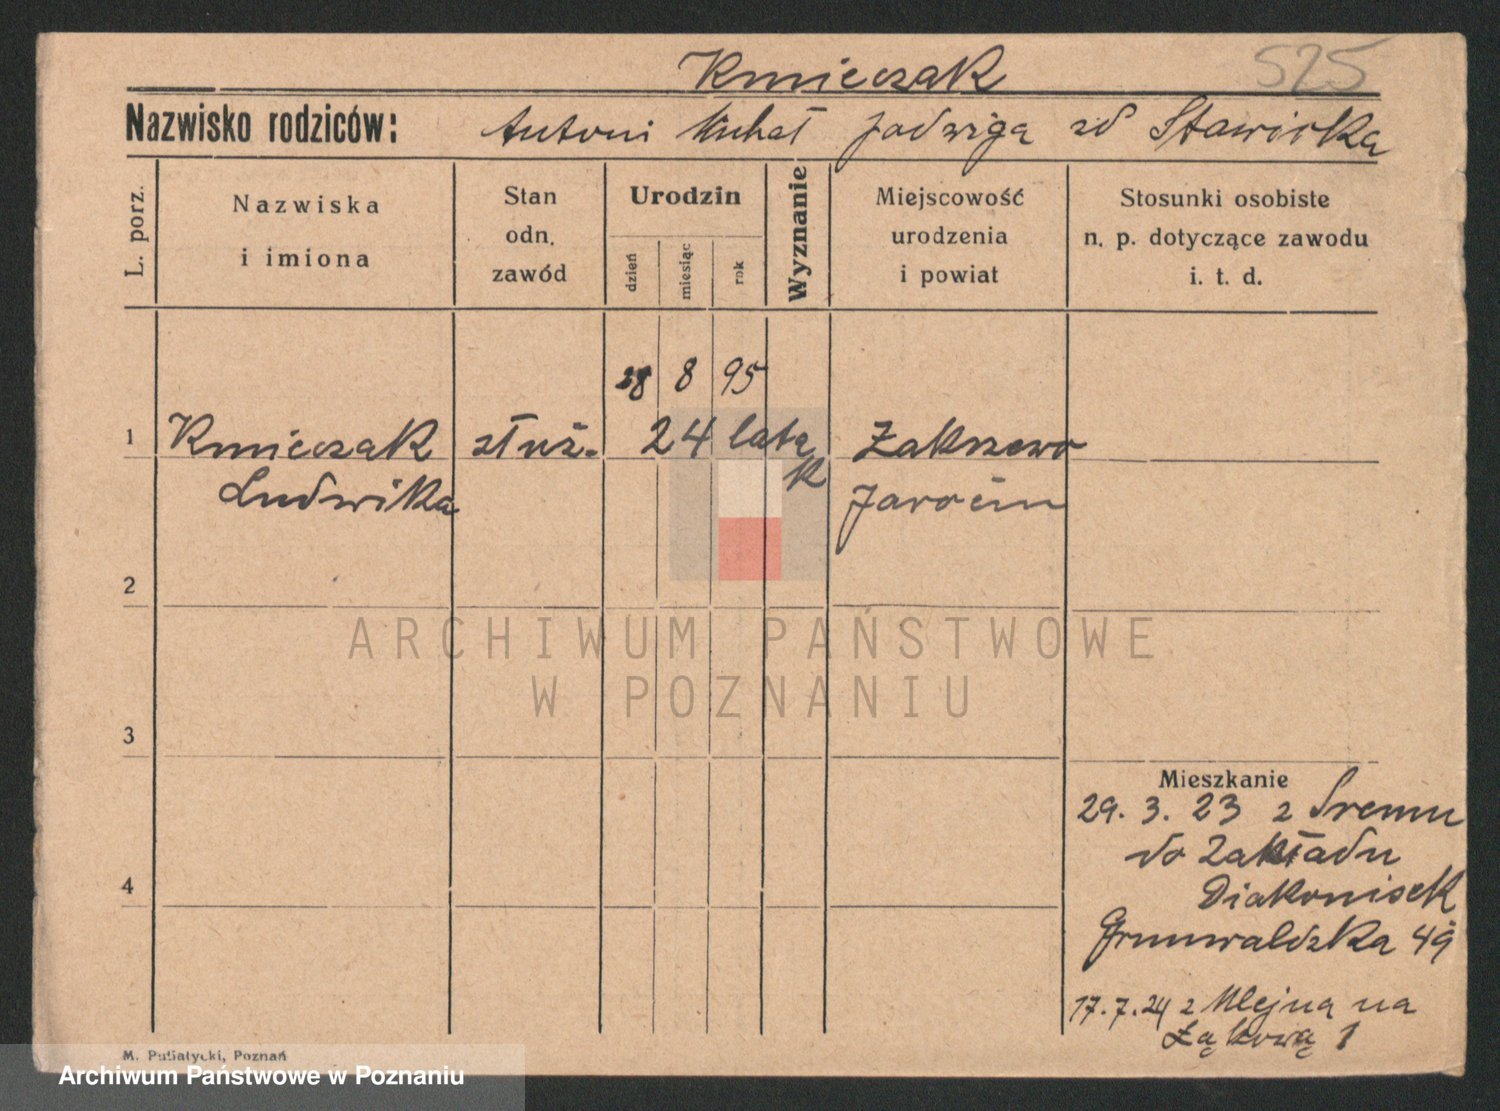 Kmieczak 525
Nazwisko rodziców: Antoni Michał Jadwiga zd Stawicka
L. porz.
Nazwiska
i imiona
Stan
odn.
zawód
Urodzin
dzień
miesiąc
rok
Wyznanie
Miejscowość
urodzenia
i powiat
Stosunki osobiste
n. p. dotyczące zawodu
i. t. d.
28 8 95
1 Kmieczak służ. 24 lata Zakrzewo
Ludwika k Jarocin
2
ARCHIWUM PAŃSTWOWE
W POZNANIU
3
Mieszkanie
29. 3. 23 z Śremu
do Zakładu
4 Diakonisek
Grunwaldzka 49
17. 7. 24 z na
Łąkową 1
M. Putiatycki, Poznań
Archiwum Państwowe w Poznaniu